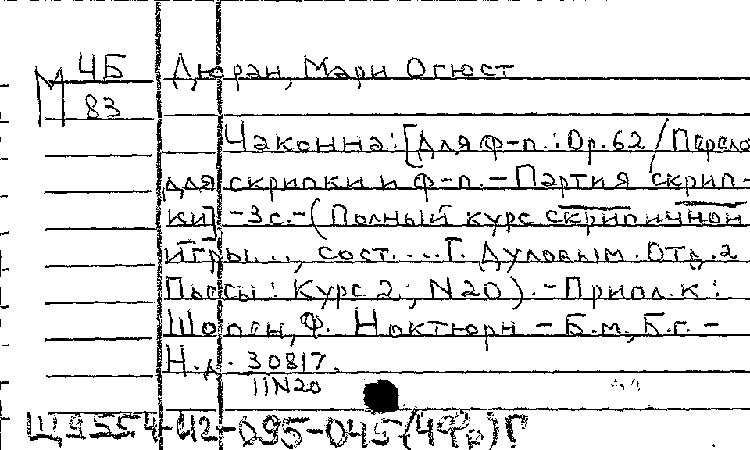 М 4Б
83
Дюран, Мари Огюст
Чаконна: [Для ф-п.: Op. 62 / Перело
для скрипки и ф-п. - Партия скрип-
ки] - 3 с. - (Полный курс скрипичной
игры..., сост. ... Г. Дуловым. Отд. 2
Пьесы: Курс 2; N20). - Прил. к:
Шопен, Ф. Ноктюрн - Б.м., Б.г. -
Н.д. 30817.
11N20
Щ9554-42-095-045(49Фр)Г